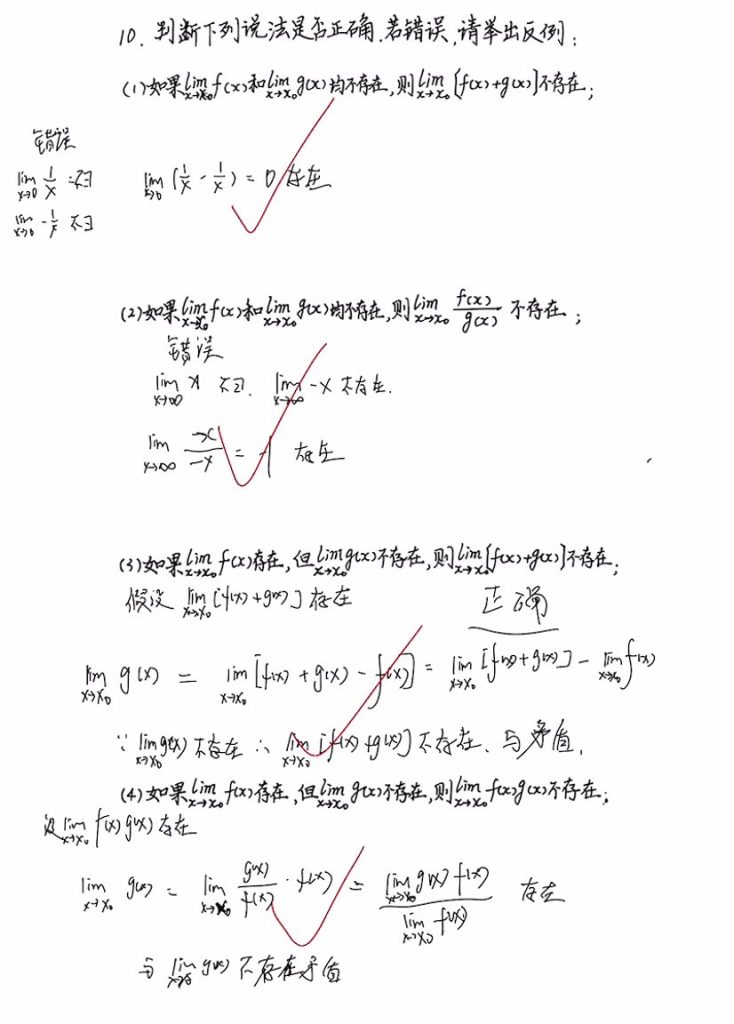 10. 判断下列说法是否正确.若错误,请举出反例:
(1)如果lim x→x₀ f(x)和lim x→x₀ g(x)均不存在,则lim x→x₀ [f(x)+g(x)]不存在;
错误
lim x→0 1/x 不∃ lim x→0 (1/x - 1/x) = 0 存在
lim x→0 -1/x 不∃
(2)如果lim x→x₀ f(x)和lim x→x₀ g(x)均不存在,则lim x→x₀ f(x)/g(x) 不存在;
错误
lim x→∞ x 不∃. lim x→∞ -x 不存在.
lim x→∞ x/-x = -1 存在
(3)如果lim x→x₀ f(x)存在,但lim x→x₀ g(x)不存在,则lim x→x₀ [f(x)+g(x)]不存在;
假设 lim x→x₀ [f(x)+g(x)] 存在 正确
lim x→x₀ g(x) = lim x→x₀ [f(x)+g(x)-f(x)] = lim x→x₀ [f(x)+g(x)] - lim x→x₀ f(x)
∵ lim x→x₀ g(x) 不存在 ∴ lim x→x₀ [f(x)+g(x)] 不存在. 与矛盾.
(4)如果lim x→x₀ f(x)存在,但lim x→x₀ g(x)不存在,则lim x→x₀ f(x)g(x)不存在;
设lim x→x₀ f(x)g(x)存在
lim x→x₀ g(x) = lim x→x₀ g(x)/f(x) · f(x) = lim x→x₀ g(x) f(x) / lim x→x₀ f(x) 存在
与 lim x→x₀ g(x) 不存在矛盾